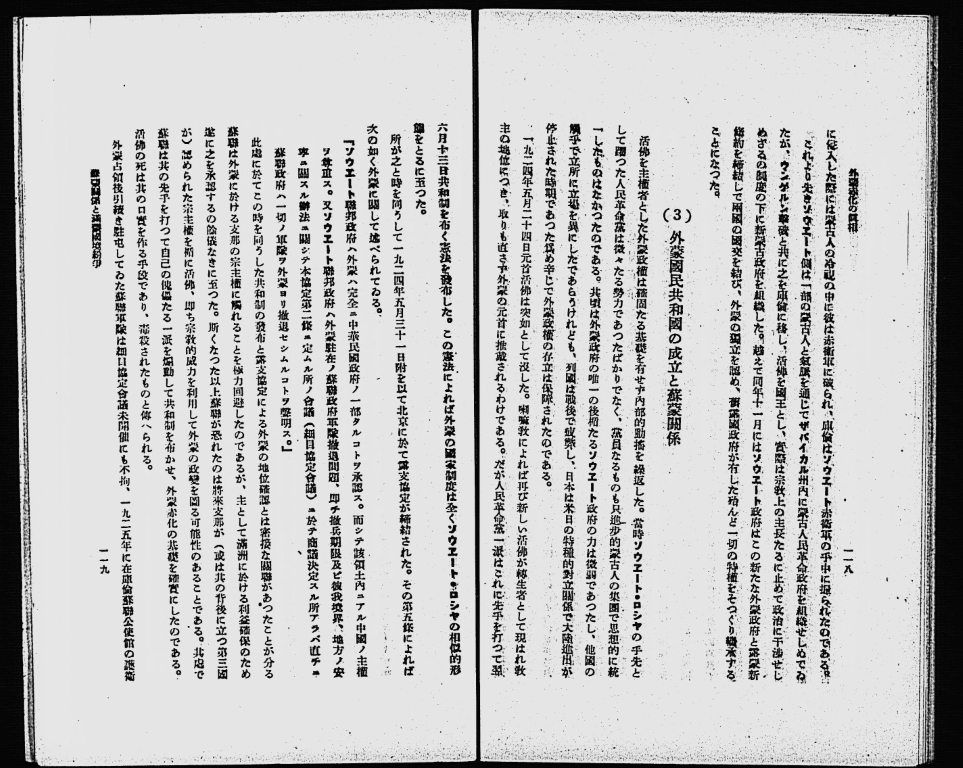 外蒙赤化の眞相
一一八
に侵入した際には蒙古人の冷視の中に彼は赤衞軍に破られ、庫倫はソウエート赤衞軍の手中に握られたのである。
これより先きソウエート側は一部の蒙古人と氣脈を通じてザバイカル州内に蒙古人民革命政府を組織せしめてゐ
たが、ウンゲルン擊破と共に之を庫倫に移し、活佛を國王とし、實際は宗敎上の主長たるに止めて政治に干涉せし
めざるの制度の下に新蒙古政府を組織した。越えて同年十一月にはソウエート政府はこの新たな外蒙政府と露蒙新
條約を締結して兩國の國交を結び、外蒙の獨立を認め、舊露國政府が有した殆んど一切の特權をそつくり繼承する
ことになつた。
(3) 外蒙國民共和國の成立と蘇蒙關係
活佛を主權者とした外蒙政權は確固たる基礎を有せず内部的動搖を繰返した。當時ソウエート・ロシヤの手先と
して躍つた人民革命黨は微々たる勢力であつたばかりでなく、黨員なるものも只進步的蒙古人の集團で思想的に統
一したものはなかつたのである。其頃は外蒙政府の唯一の後楯たるソウエート政府の力は微弱であつたし、他國の
觸手で立所に立場を異にしたであらうけれども、列國は戰後で疲弊し、日本は米日の特種的對立關係で大陸進出が
停止された時期であつた爲め辛じて外蒙政權の存立は保障されたのである。
一九二四年五月二十四日元首活佛は突如として沒した。喇嘛敎によれば再び新しい活佛が轉生者として現はれ敎
主の地位につき、取りも直さず外蒙の元首に推戴されるわけである。だが人民革命黨一派はこれに先手を打つて翌
六月十三日共和制を布く憲法を發布した。この憲法によれば外蒙の國家制度は全くソウエート・ロシヤの相似的形
態をとるに至つた。
所が之と時を同うして一九二四年五月三十一日附を以て北京に於て露支協定が締結された。その第五條によれば
次の如く外蒙に關して述べられてゐる。
『ソウエート聯邦政府ハ外蒙ハ完全ニ中華民國政府ノ一部タルコトヲ承認ス。而シテ該領土内ニアル中國ノ主權
ヲ尊重ス。又ソウエート聯邦政府ハ外蒙駐在ノ蘇聯政府軍隊撤退問題、即チ撤兵期限及ビ彼我境界、地方ノ安
寧ニ關スル辦法ニ關シテ本協定第二條ニ定ムル所ノ會議(細目協定會議)ニ於テ商議決定スル所アラバ直チニ
蘇聯政府ハ一切ノ軍隊ヲ外蒙ヨリ撤退セシムルコトヲ聲明ス。』
此處に於てこの時を同うした共和制の發布と露支協定による外蒙の地位確認とは密接な關聯があつたことが分る
蘇聯は外蒙に於ける支那の宗主權に觸れることを極力回避したのであるが、主として滿洲に於ける利益確保のため
遂に之を承認するの餘儀なきに至つた。斯くなつた以上蘇聯が恐れたのは將來支那が(或は其の背後に立つ第三國
が)認められた宗主權を楯に活佛、即ち宗敎的威力を利用して外蒙の政變を圖る可能性のあることである。其處で
蘇聯は其の先手を打つて自己の傀儡たる一派を煽動して共和制を布かせ、外蒙赤化の基礎を確實にしたのである。
活佛の死は其の口實を作る手段であり、毒殺されたものと傳へられる。
外蒙占領後引續き駐屯してゐた蘇聯軍隊は細目協定會議未開催にも不拘、一九二五年に在庫倫蘇聯公使館の護衞
一一九